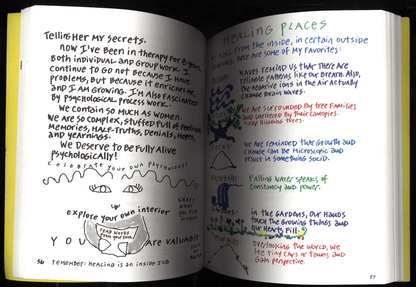 Telling Her my secrets.
Now I've Been in therapy For 8 years,
Both individual and Group work. I
continue to Go not Because I Have
problems, But Because it enriches me,
and I am Growing. I'm also Fascinated
By psychological process work.
We contain so much as women.
We are so complex, stuffed full of Feelings,
Memories, Half-Truths, Denials, Hopes,
and yearnings.
We Deserve to Be Fully Alive
psychologically!
Celebrate your own psychology!
explore your own interior
YOU are valuable
56 Remember: Healing is an inside job
Healing Places
We Heal From the inside, in certain outside
Here are some of my Favorites:
Ocean
Waves remind us that there are
reliable patterns like our Breath. Also,
the negative ions in the air actually
change Brain waves.
We are surrounded by tree Families
and sheltered by their canopies.
Keep Hugging trees.
We are reminded that Growth and
change can Be microscopic and
result in something solid.
Falling water speaks of
constancy and power.
Gardens:
in the Gardens, our Hands
touch the Growing things and
our Hearts Fill.
Overlooking the world, we
see tiny cars or towns and
Gain perspective.
57